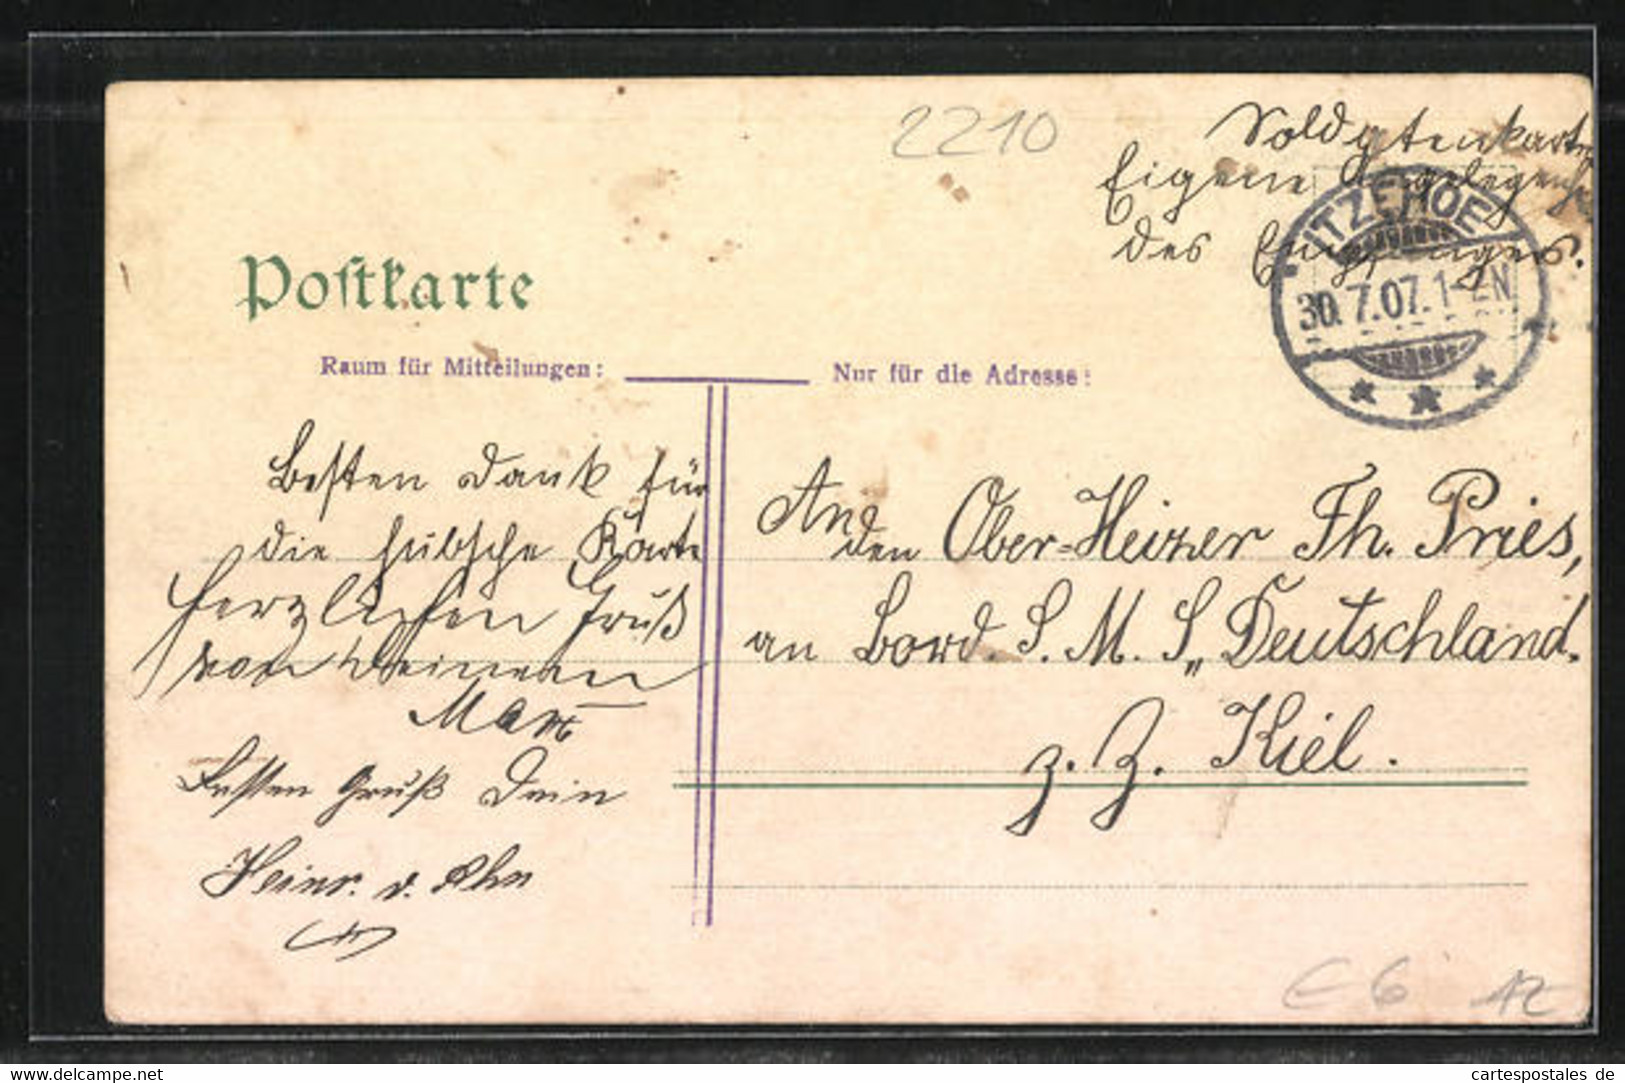 2210
Soldatenkarte
Eigene Angelegenheit
des Empfängers.
ITZEHOE
30.7.07.1-2N
* * *
Postkarte
Raum für Mitteilungen:
Nur für die Adresse:
Besten Dank für
die hübsche Karte
Herzlichen Gruß
von
Besten Gruß Dein
Heinr. v.
An den Ober-Heizer Th. Pries,
an Bord S. M. S. „Deutschland.
z. Z. Kiel.
E 6 12
cartespostales de